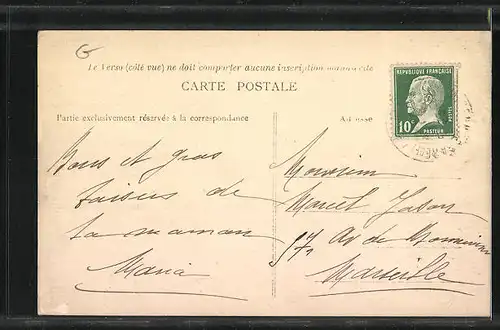 G
Le Verso (côté vue) ne doit comporter aucune inscription manuscrite
CARTE POSTALE
Partie exclusivement réservée à la correspondance
Adresse
RÉPUBLIQUE FRANÇAISE
POSTES
10c
PASTEUR
Bons et gros
baisers de
ta maman
Maria
Monsieur
Marcel
97, Av de
Marseille